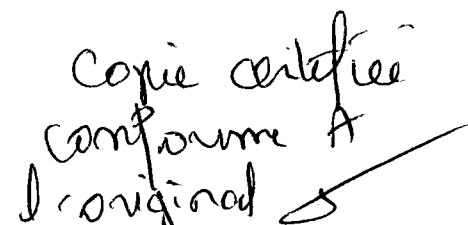 Copie certifiée
conforme A
l'original